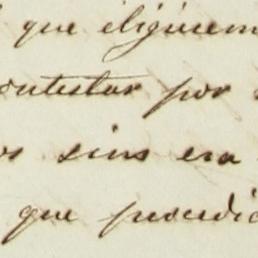 que eligiesem
contestar por
sins era
que procedic